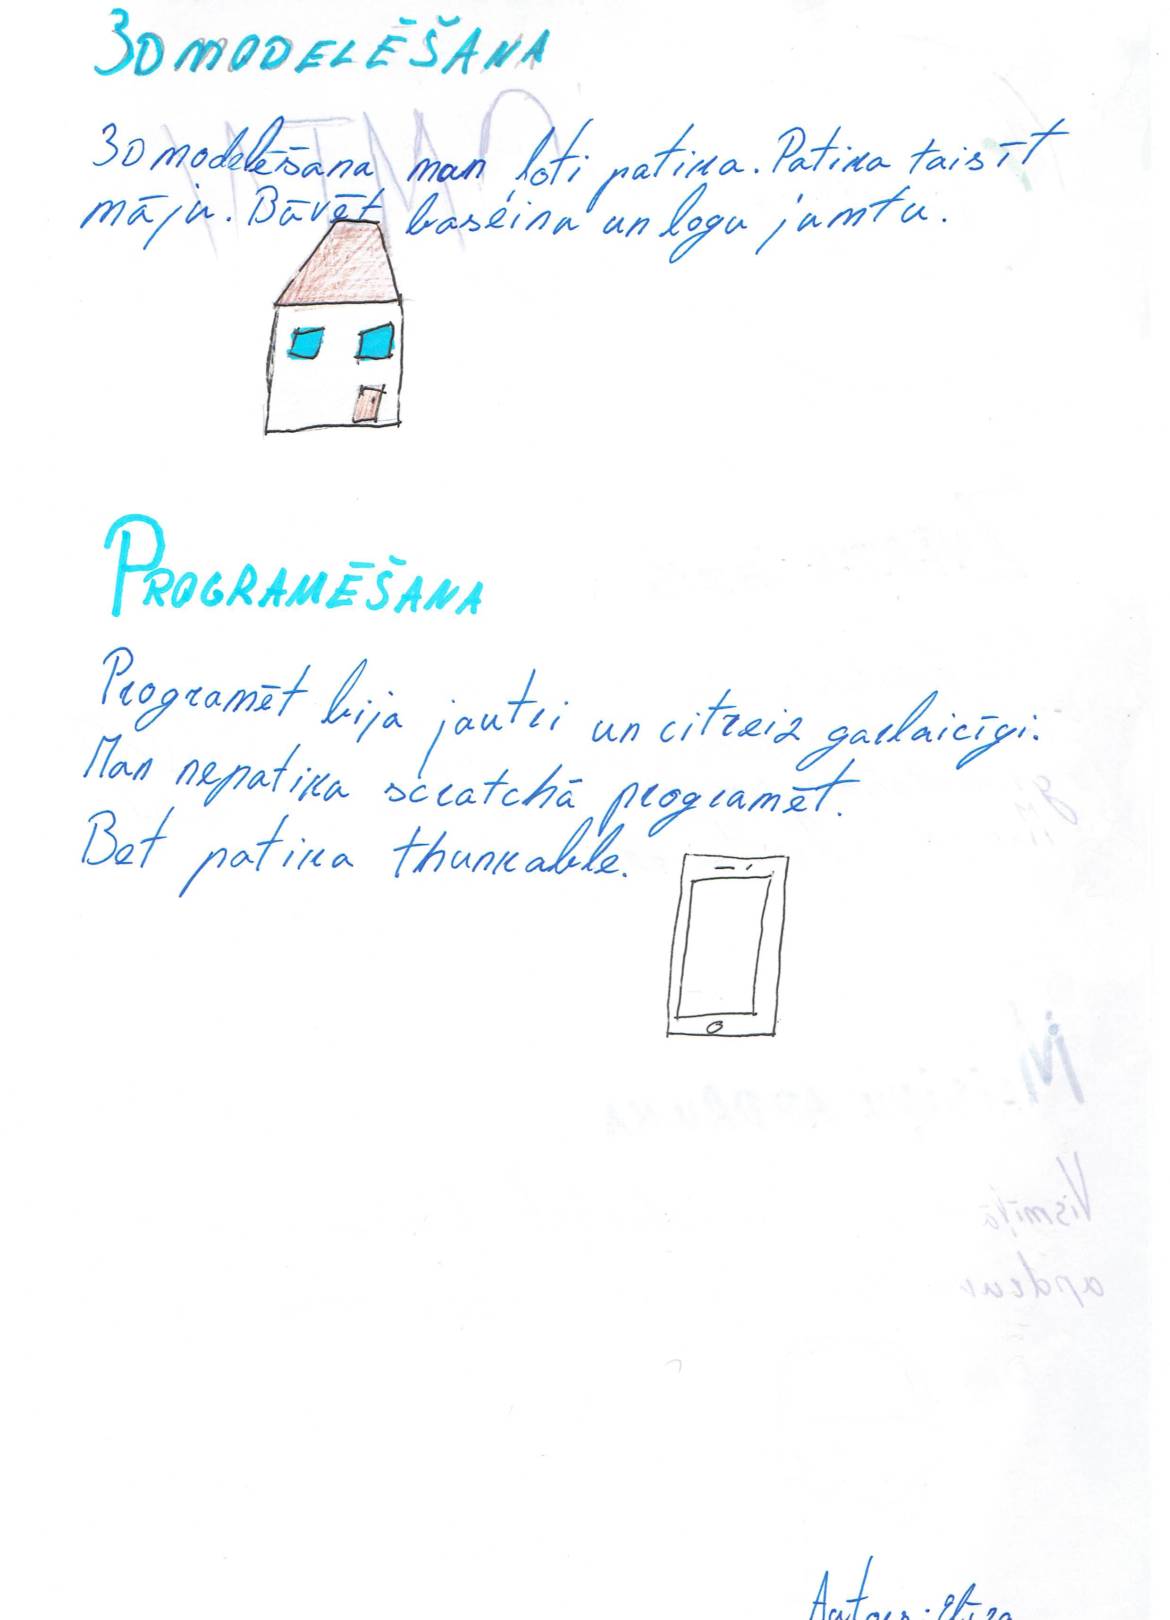 3D MODELĒŠANA
3D modelēšana man ļoti patika. Patika taisīt
māju. Būvēt baseina un logu jumtu.
PROGRAMĒŠANA
Programēt bija jautri un citreiz garlaicīgi.
Man nepatika scratchā programēt.
Bet patika thunkable.
Autors: